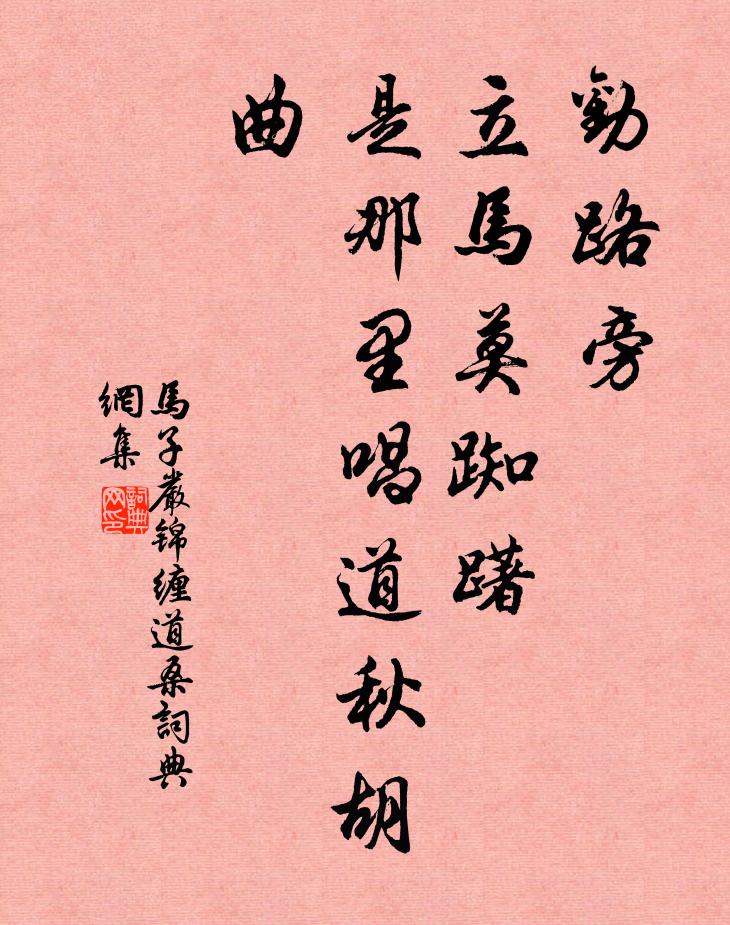 勸路旁
立馬莫踟躇
是那里唱道秋胡
曲
馬子嚴錦纏道桑詞典
網集
詞典
网印